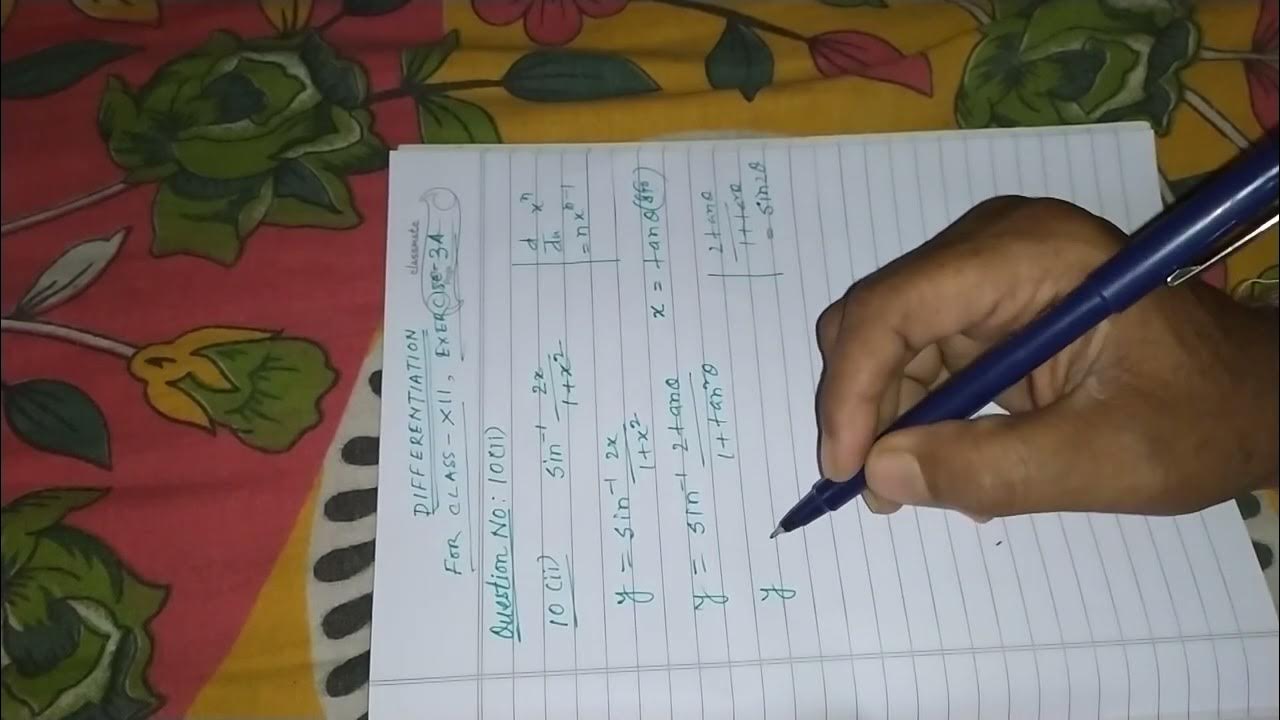 classmate
DIFFERENTIATION
FOR CLASS-XII, EXERCISE-3A
Question No: 10(ii)
10 (ii) sin⁻¹ 2x/1+x² | d/dx xⁿ = nxⁿ⁻¹
y = sin⁻¹ 2x/1+x² x = tanθ
y = sin⁻¹ 2tanθ/1+tan²θ | 2tanθ/1+tan²θ = sin2θ
y